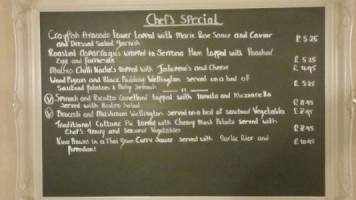 Chef's Special
Crayfish Avocado tower topped with Marie Rose Sauce and Caviar
and Dressed Salad Garnish £ 5.25
Roasted Asparagus wrapped in Serrano Ham topped with Poached
Egg and Parmesan £ 5.25
Chilli Nacho's topped with Jalapeno's and Cheese £ 4.95
Wood Pigeon and Black Pudding Wellington served on a bed of
Sauteed Potatoes & Baby Spinach £ 5.25
V Spinach and Ricotta Cannelloni topped with Tomato and Mozzarella
served with Rustic Salad £ 8.95
V Broccoli and Mushroom Wellington served on a bed of Sauteed Vegetables £ 8.95
Traditional Cottage Pie topped with Cheesy Mash Potato served with
Chef's Gravy and Seasonal Vegetables £ 8.95
King Prawns in a Thai Green Curry Sauce served with Garlic Rice and
£ 10.95